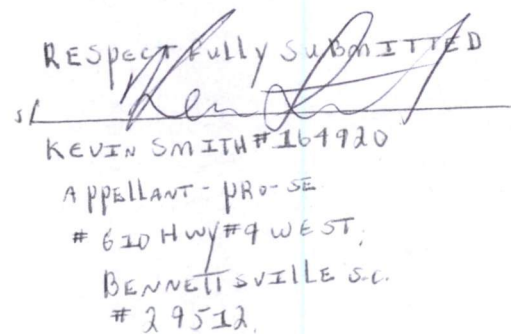 RESpectfully SuBmITTED
s/ Ken Smith
KEVIN SMITH #164920
APPELLANT - PRO-SE
# 610 HWY #9 WEST,
BENNETTSVILLE S.C.
# 29512.